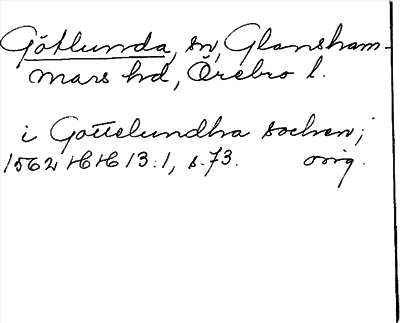 Götlunda, sn, Glansham-
mars hd, Örebro l.
i Gottelundha sochen;
1562 HH 13:1, s. 73. orig.